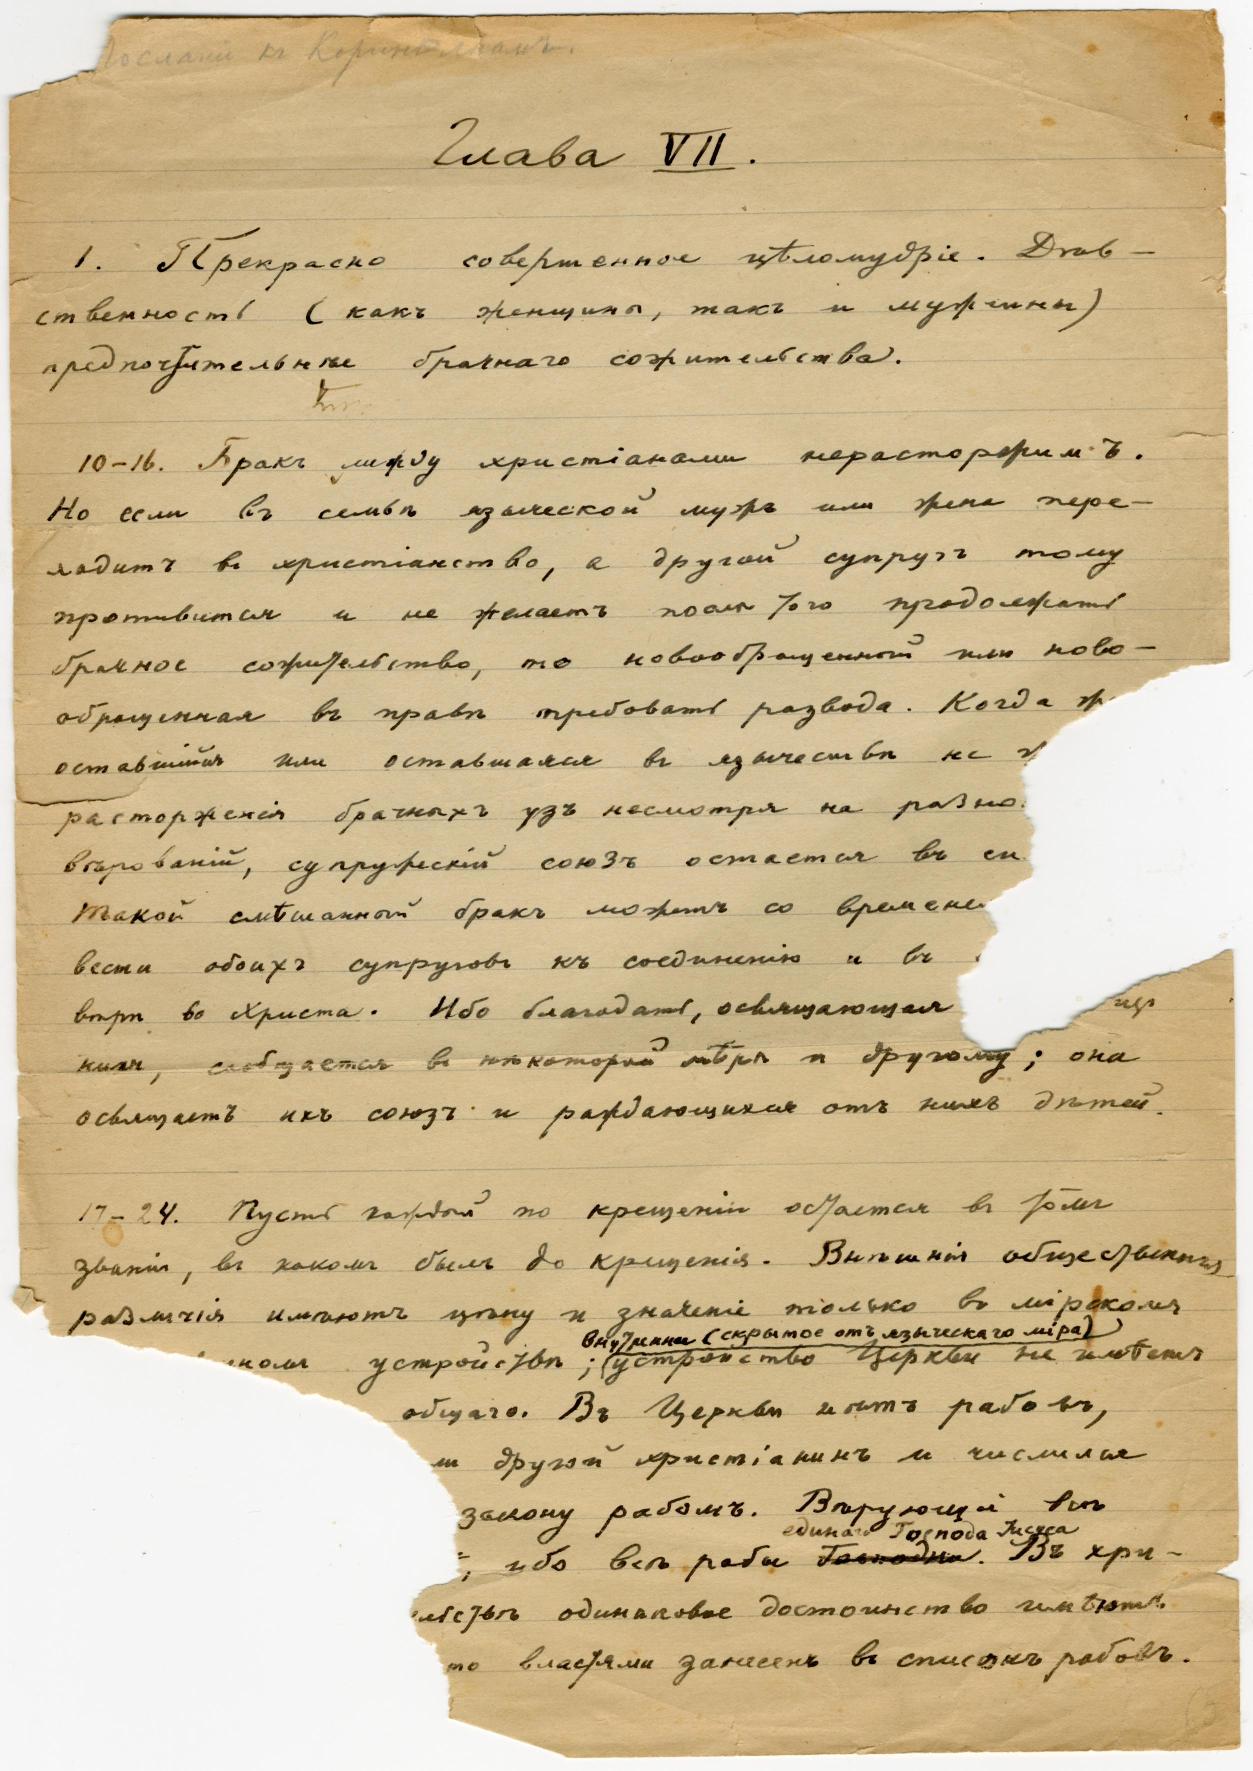 Послані къ Коринтянамъ.
Глава VII.
1. Прекрасно совершенное цѣломудріе. Дѣв-
ственность (какъ женщины, такъ и мужчины)
предпочтительнѣе брачнаго сожительства.
10-16. Бракъ между христіанами нерасторжимъ.
Но если въ семьѣ языческой мужъ или жена пере-
ходитъ въ христіанство, а другой супругъ тому
противится и не желаетъ послѣ того продолжать
брачное сожительство, то новообращенный или ново-
обращенная въ правѣ требовать развода. Когда ж
оставшійся или оставшаяся въ язычествѣ не ж
расторженія брачныхъ узъ несмотря на разно
вѣрованій, супружескій союзъ остается въ си
Такой смѣшанный бракъ можетъ со времене
вести обоихъ супруговъ къ соединенію и въ
вѣрѣ во Христа. Ибо благодать, освящающая
нихъ, сообщается въ нѣкоторой мѣрѣ и другому; она
освящаетъ ихъ союзъ и раждающихся отъ нихъ дѣтей.
17-24. Пусть каждый по крещеніи остается въ томъ
званіи, въ какомъ былъ до крещенія. Внѣшнія общественныя
различія имѣютъ цѣну и значеніе только въ мірскомъ
внутреннее (скрытое отъ языческаго міра)
устройствѣ; устройство Церкви не имѣетъ
общаго. Въ Церкви нѣтъ рабовъ,
ли другой христіанинъ и числился
закону рабомъ. Вѣрующіе всѣ
единаго Господа Іисуса
, ибо всѣ рабы Господни. Въ хри-
одинаковое достоинство имѣютъ
то властями занесенъ въ списокъ рабовъ.